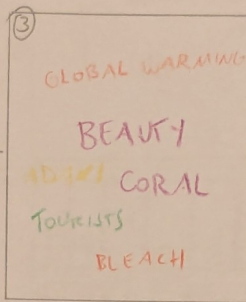 3
GLOBAL WARMING
BEAUTY
ADANI CORAL
TOURISTS
BLEACH